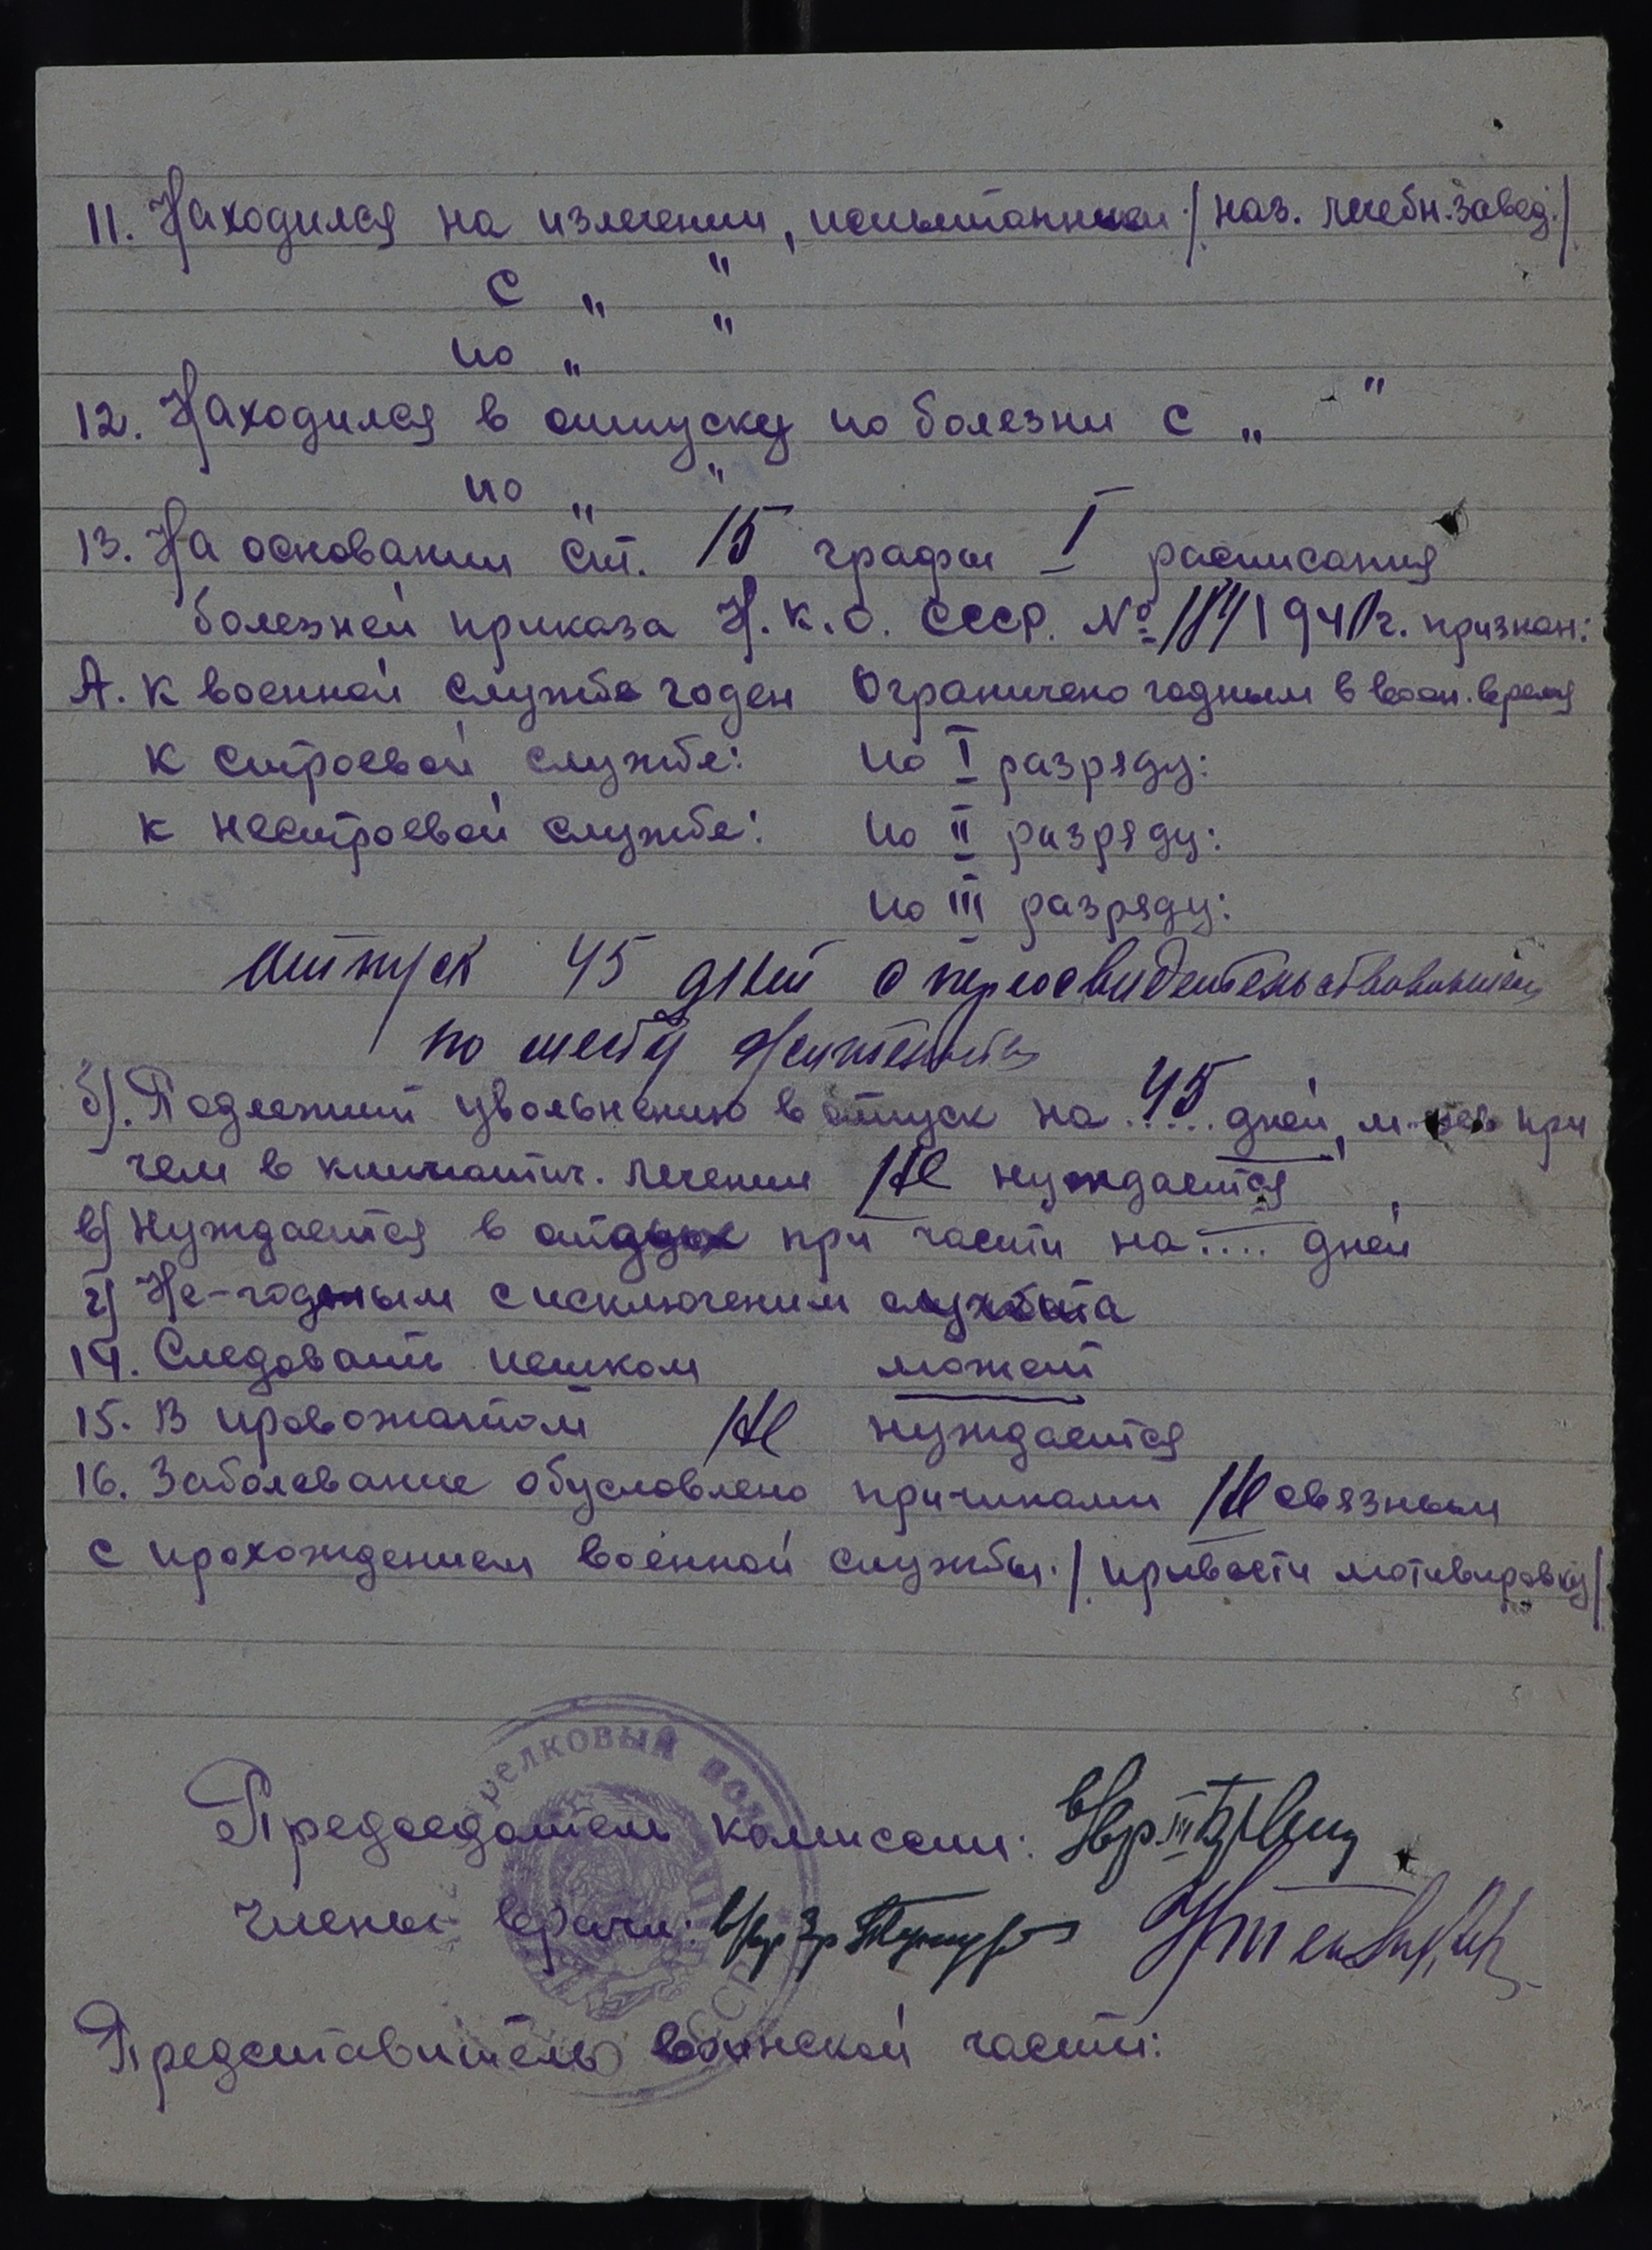 11. Находился на излечении, испытании /наз. лечебн. завед./
с „ "
по „ "
12. Находился в отпуску по болезни с „ "
по „ "
13. На основании ст. 15 графы I расписания
болезней приказа Н.К.О. СССР. № 184 1940г. признан:
А. к военной службе годен Ограничено годным в воен. время
к строевой службе: по I разряду:
к нестроевой службе: по II разряду:
по III разряду:
отпуск 45 дней с переосвидетельствованием
по месту жительства
б). Подлежит увольнению в отпуск на . 45 . дней, м-цев при
чем в климатич. лечении не нуждается
в) Нуждается в отдых при части на .... дней
г) Не-годным с исключением с учота
14. Следовать пешком может
15. В провожатом не нуждается
16. Заболевание обусловлено причинами не связным
с прохождением военной службы. /привести мотивировку/
Председатель комиссии:
Члены врачи:
Представитель воинской части:
СТРЕЛКОВЫЙ ПОЛК
СССР